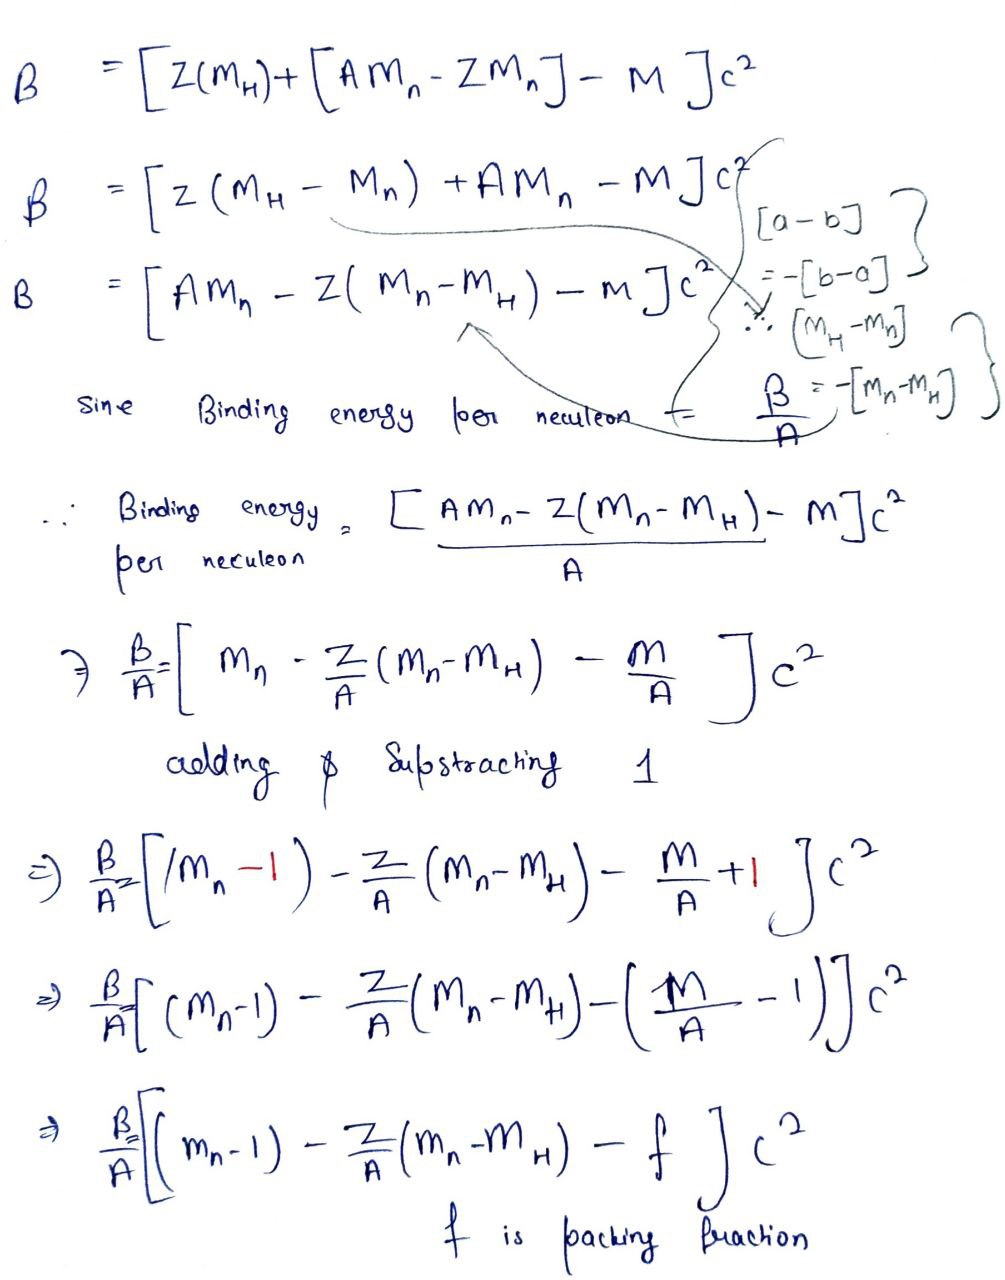 B = [Z(M_H) + [AM_n - ZM_n] - M ]c²
B = [Z (M_H - M_n) + AM_n - M]c²
[a-b]
= -[b-a]
B = [AM_n - Z( M_n-M_H) - M]c²
∴ [M_H-M_n]
= -[M_n-M_H]
Sine Binding energy per neculeon = B/A
∵ Binding energy per neculeon = [AM_n - Z(M_n-M_H) - M]c² / A
⇒ B/A = [ M_n - Z/A (M_n-M_H) - M/A ] c²
adding & Substracting 1
⇒ B/A = [(M_n -1) - Z/A (M_n-M_H) - M/A +1 ]c²
⇒ B/A = [ (M_n-1) - Z/A (M_n-M_H) - (M/A -1)] c²
⇒ B/A = [(M_n-1) - Z/A (M_n-M_H) - f ] c²
f is packing fraction